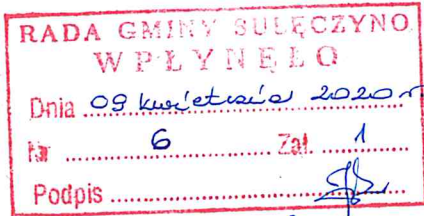 RADA GMINY SULĘCZYNO
WPŁYNĘŁO
Dnia 09 kwietnia 2020 r
Nr 6 Zał. 1
Podpis